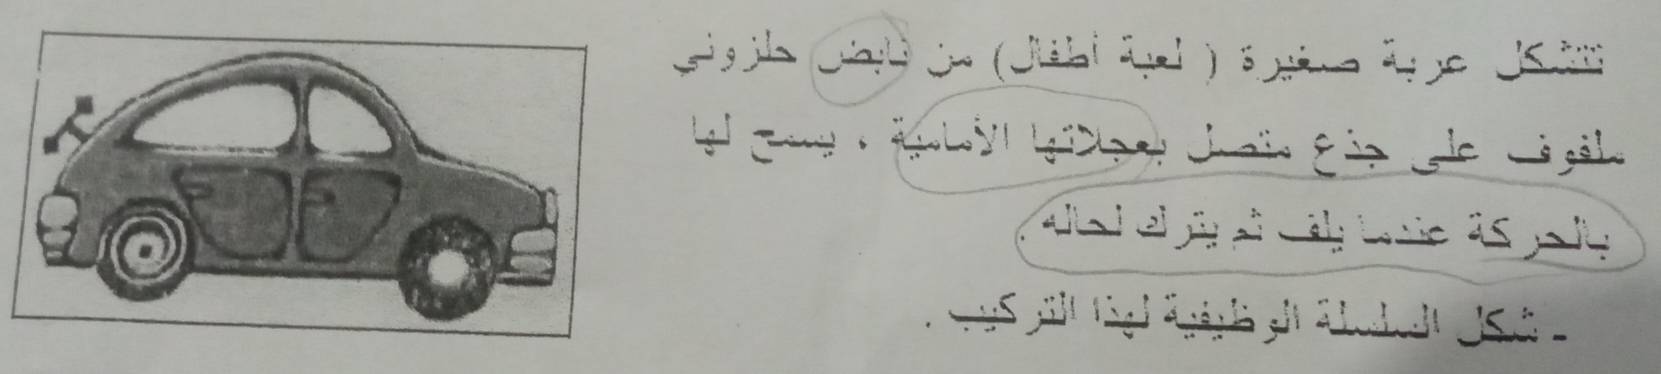 تتشكل عربة صغيرة ( لعبة أطفال) من نابض حلزوني
ملفوف على جذع متصل بعجلاتها الأمامية ، يسمح لها
بالحركة عندما يلف ثم يترك لحاله .
- شكل السلسلة الوظيفية لهذا التركيب .